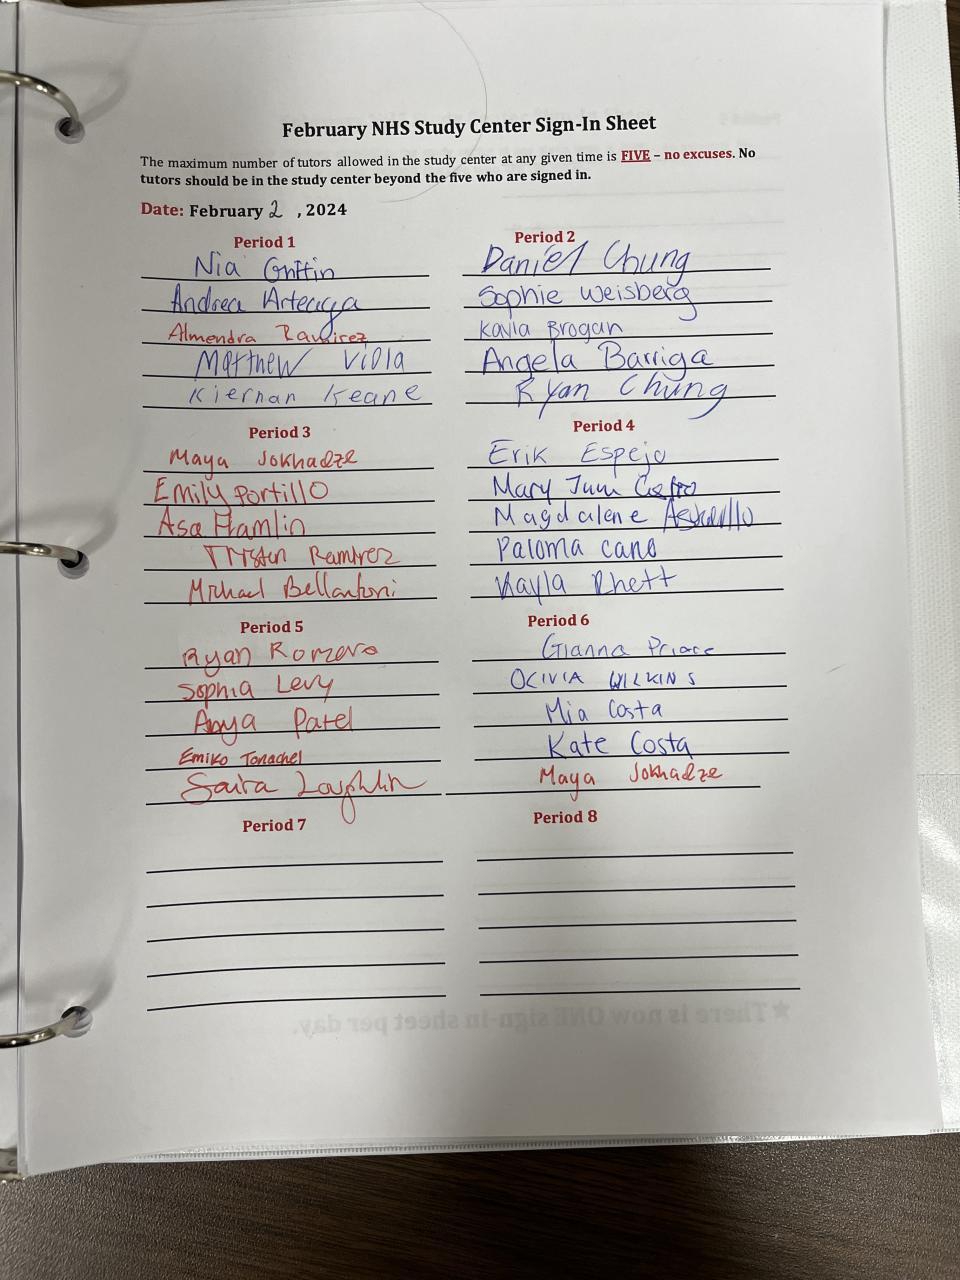 February NHS Study Center Sign-In Sheet
The maximum number of tutors allowed in the study center at any given time is FIVE – no excuses. No
tutors should be in the study center beyond the five who are signed in.
Date: February 2 , 2024
Period 1
Nia Griffin
Andrea Arteaga
Almendra Ramirez
Matthew Viola
Kiernan Keane
Period 2
Daniel Chung
Sophie Weisberg
Kayla Brogan
Angela Barriga
Ryan Chung
Period 3
Maya Jokhadze
Emily Portillo
Asa Hamlin
Trysten Ramirez
Michael Bellantoni
Period 4
Erik Espejo
Mary Castro
Magdalene
Paloma cano
Kayla Rhett
Period 5
Ryan Romero
Sophia Levy
Anya Patel
Emiko Tonachel
Saira Loughlin
Period 6
Gianna
OLIVIA WILKINS
Mia Costa
Kate Costa
Maya Jokhadze
Period 7
Period 8
★There is now ONE sign-in sheet per day.